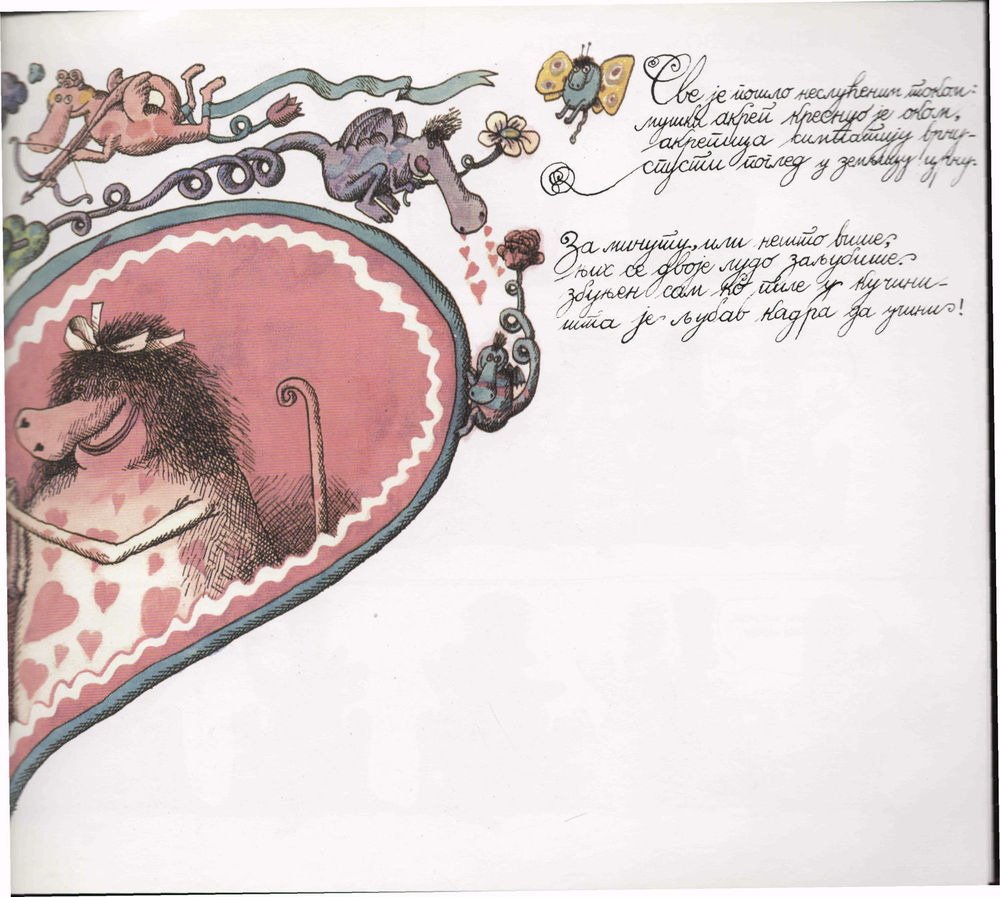 Све је пошло неслућеним током:
мушки акреп кресну је оком,
акрепица симпатију врну-
спусти поглед у земљицу црну.
За минуту, или нешто више,
њих се двоје лудо заљубише.
збуњен сам ко пиле у кучини-
шта је љубав кадра да учини!